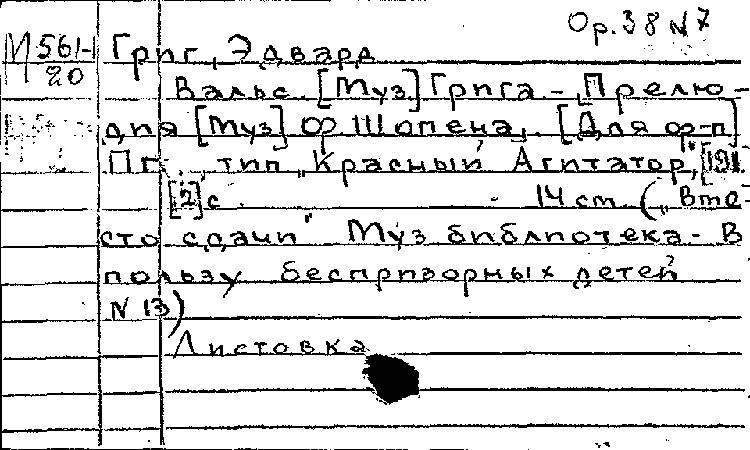 Ор. 38 № 7
М 561-1 Григ, Эдвард
20
Вальс. [Муз] Грига - Прелю-
дия [Муз] Ф. Шопена. [Для ф-п]
Пг., тип "Красный Агитатор", [191
[2] с. 14 см. („Вме-
сто сдачи" Муз библиотека - В
пользу беспризорных детей
№ 13)
Листовка